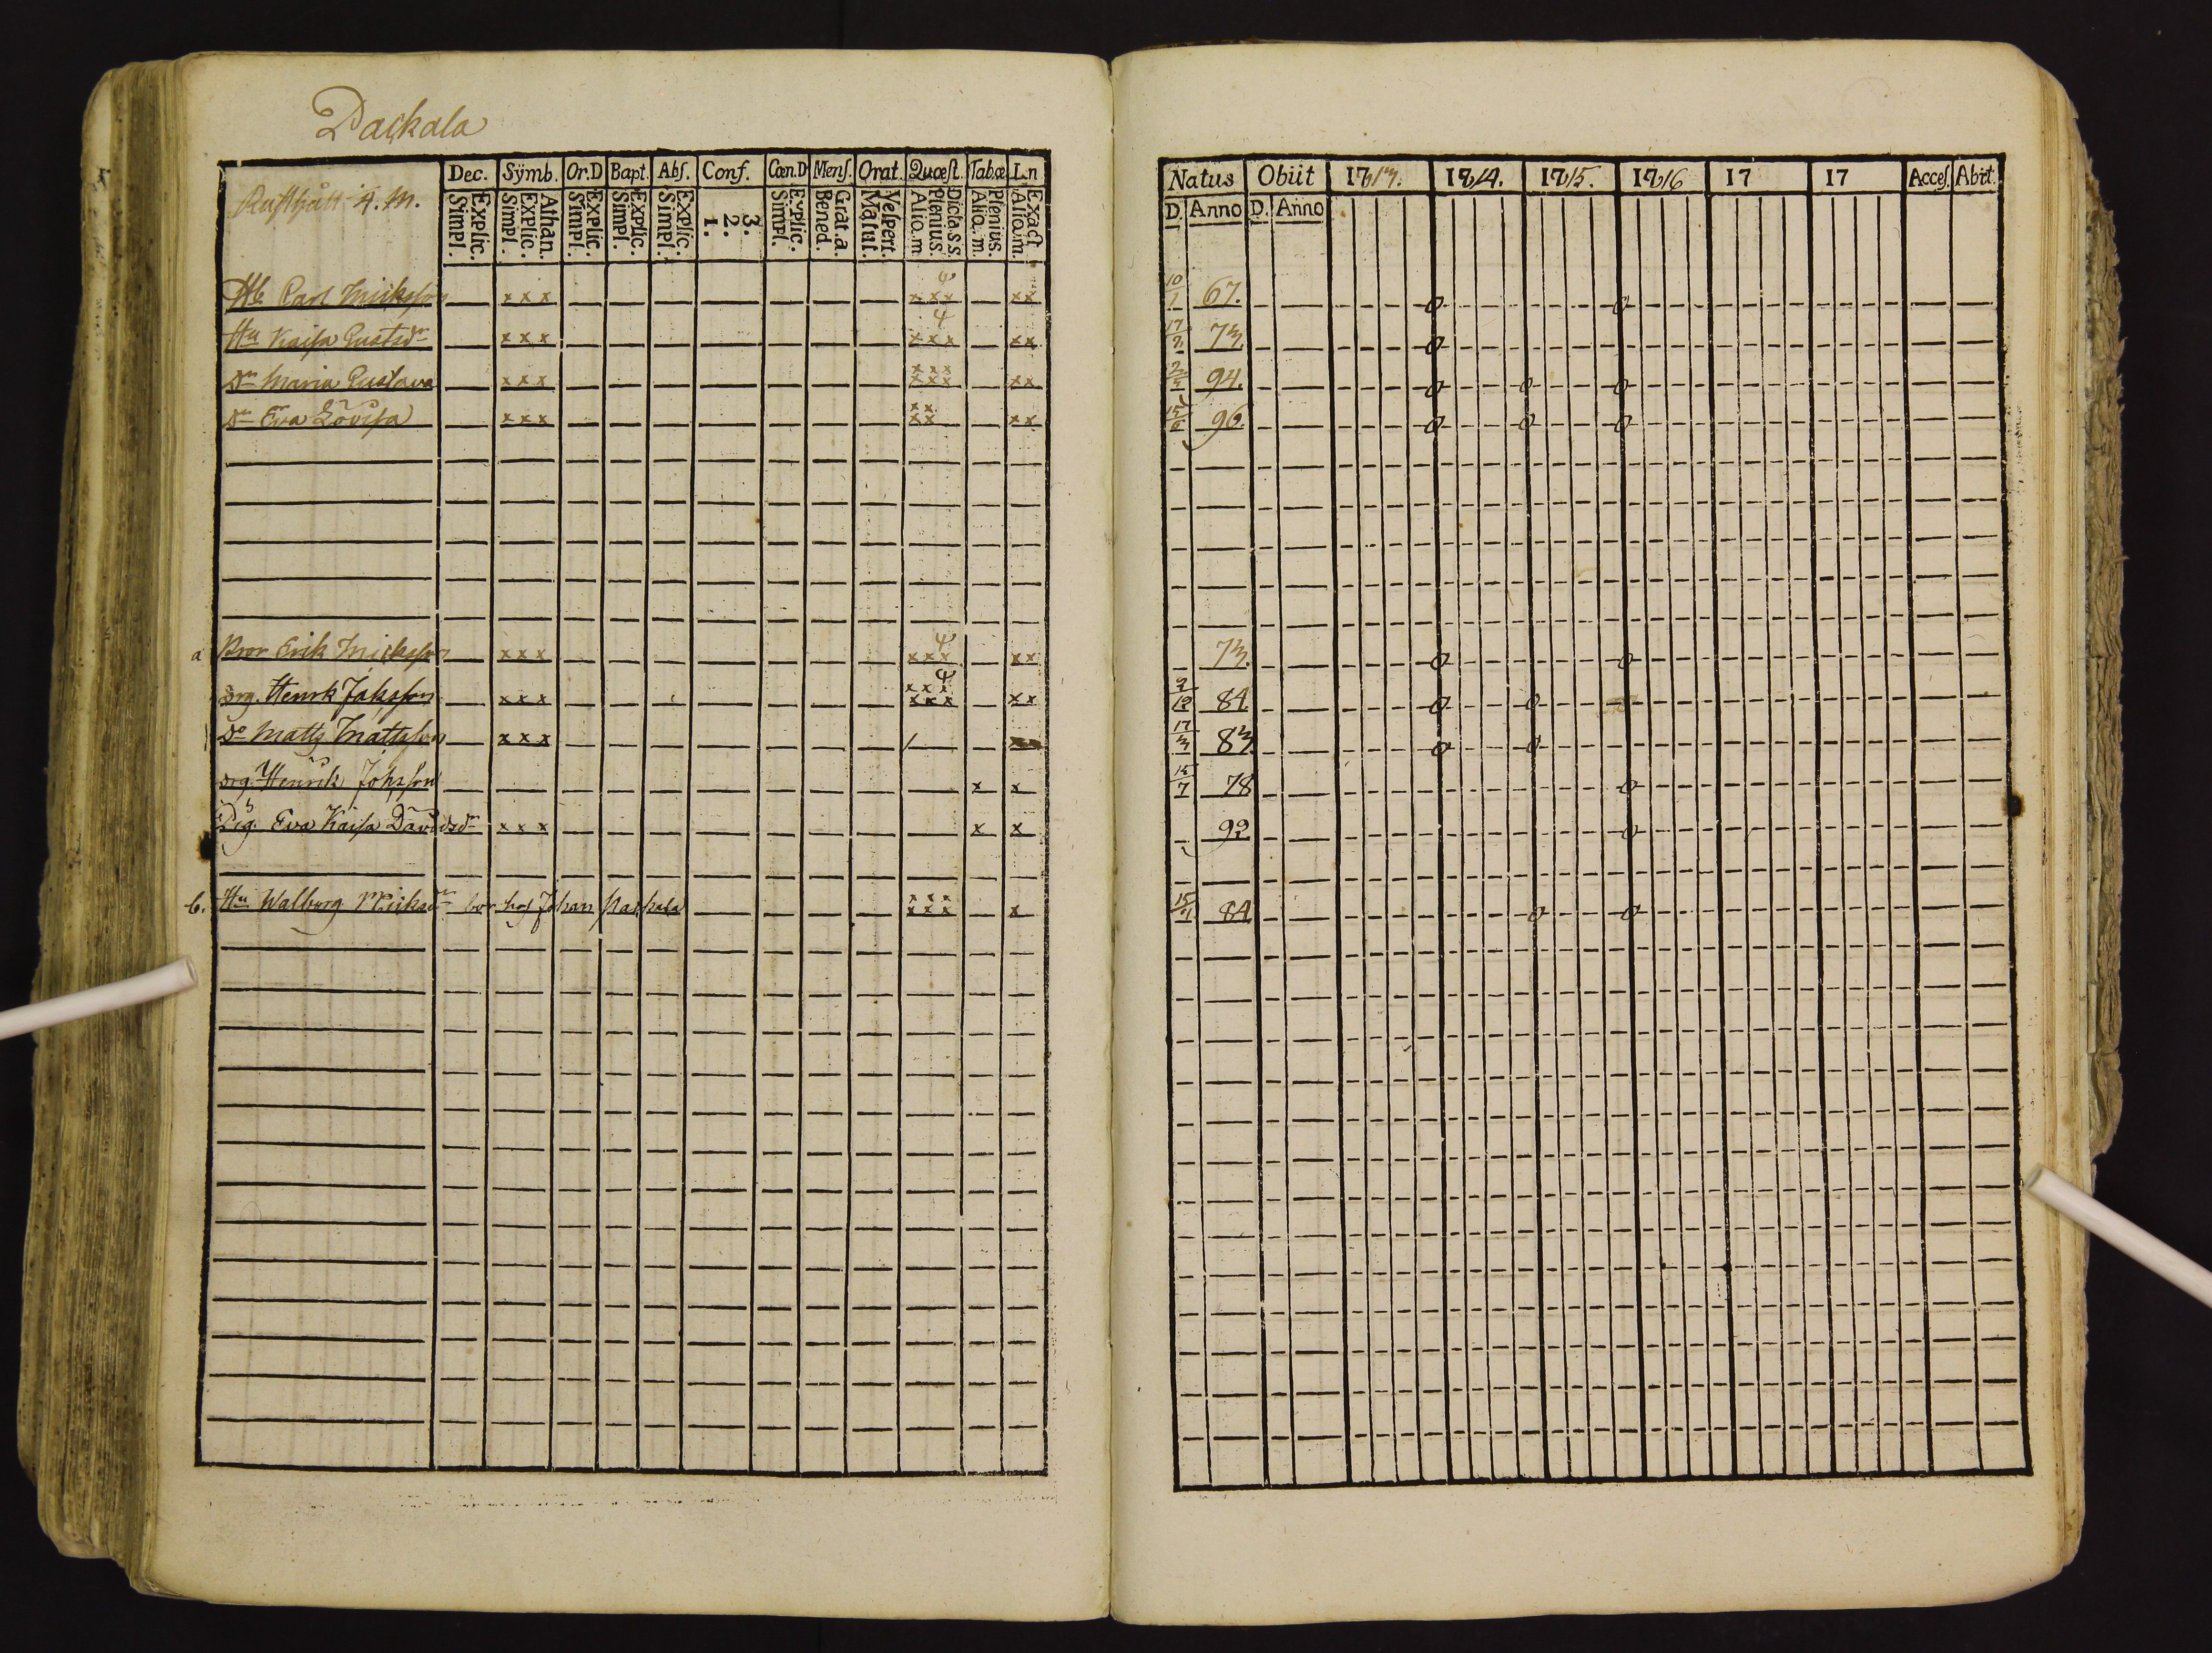 Dackala
Dec. Sÿmb. Or.D Bapt. Abſ. Conf. Cœn.D Menſ. Orat. Quæſt. Tabæ L.n
Ruſthåll 4. M.
Explic. Simpl. Athan. Explic. Simpl. Explic. Simpl. Explic. Simpl. Explic. Simpl. 3. 2. 1. Explic. Simpl. Grat.a. Bened. Veſpert. Matut. Dicta.S.S. Plenius. Alio.m Plenius. Alio.m Exact Alio.m.
Hb Carl Michelſſon x x x ψ x x x x x
Hu Kaiſa Guſtsdr x x x ψ x x x x x
Dr Maria Guſtava x x x x x x x x x x x
Dr Eva Loviſa x x x x x x x x x
a Bror Erik Michelſſon x x x ψ x x x x x
drg. Henrk Jakſſon x x x ψ x x x x x x x x
Do Matts Mattsſon x x x / x x
drg. Henrik Johſſon x x
Pig. Eva Kaiſa Davidsdr x x x x x
b. Hu Walborg Michsdr bor hos Johan x x x x x x x
Natus Obiit 1813. 1814. 1815. 1816 17 17 Acceſ. Abiit.
D. Anno D. Anno
10/1 67. o o
17/7 73 o
94. o o o
15/6 96 o o o
73. o o
2/12 84 o o
17/3 83 o o
15/7 78 o
92 o
15/4 84 o o